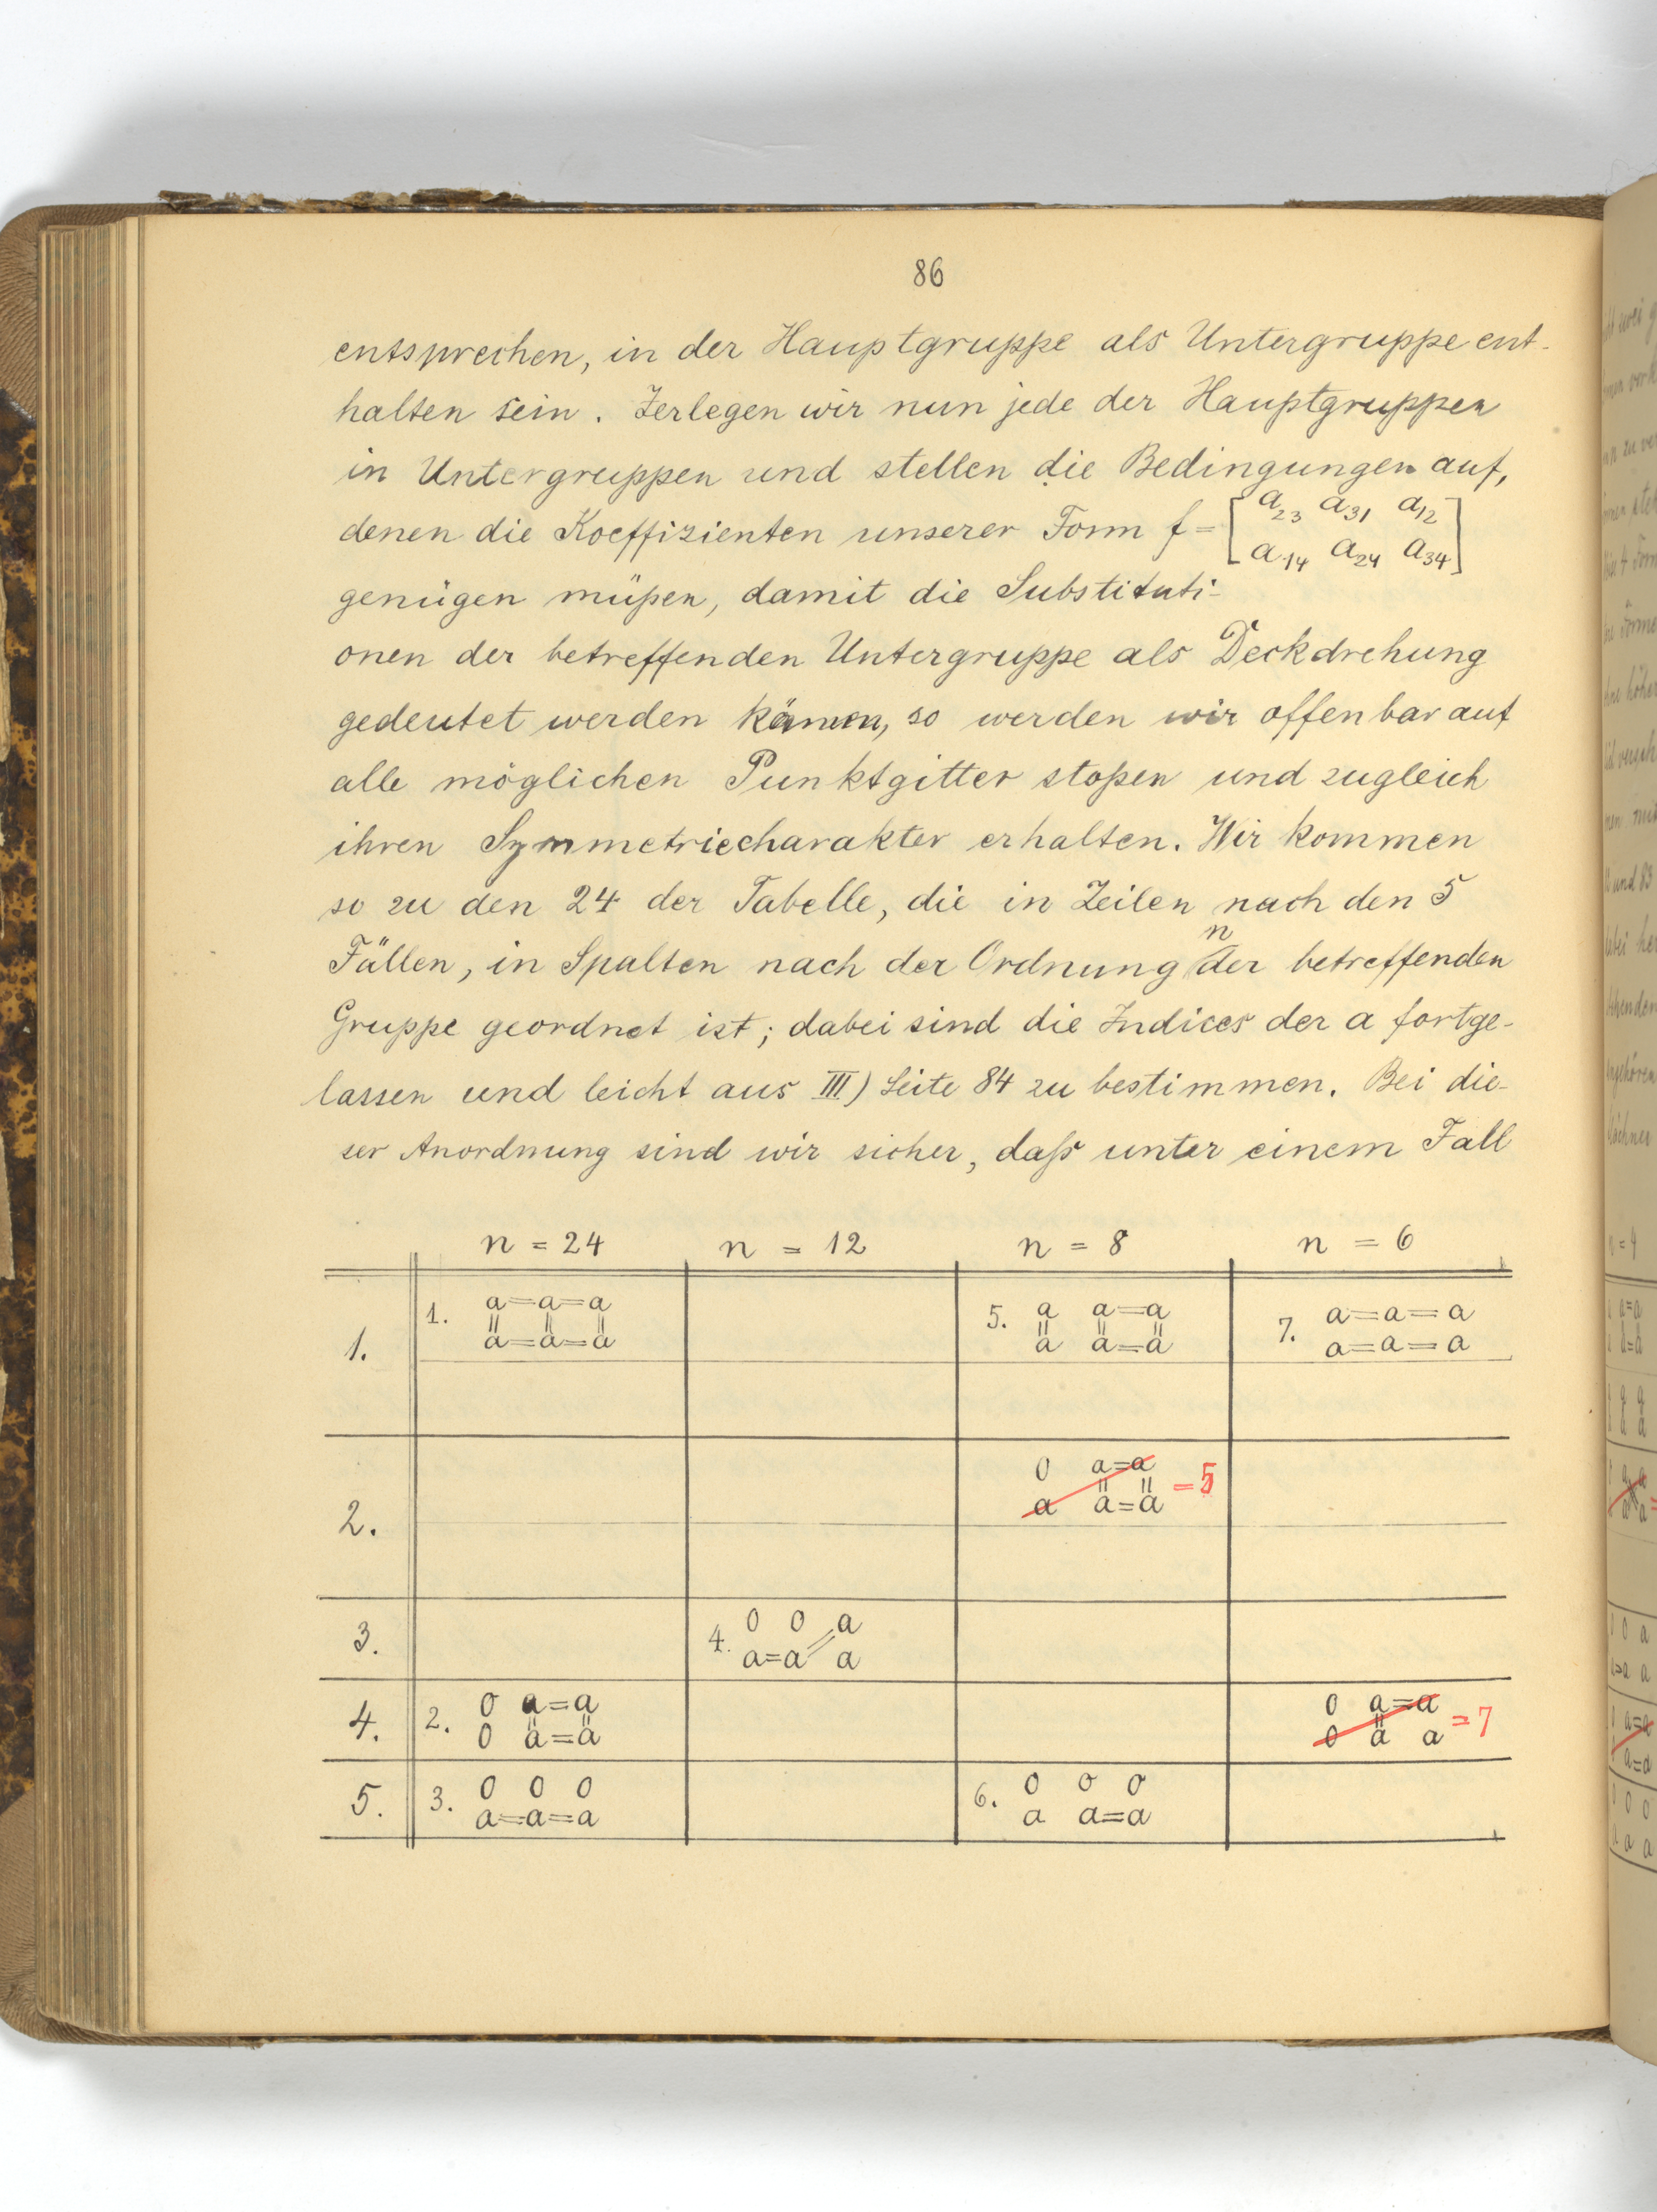 86
entsprechen, in der Hauptgruppe als Untergruppe ent-
halten sein. Zerlegen wir nun jede der Hauptgruppen
in Untergruppen und stellen die Bedingungen auf,
denen die Koeffizienten unserer Form f = [a23 a31 a12
a14 a24 a34]
genügen müßen, damit die Substituti-
onen der betreffenden Untergruppe als Deckdrehung
gedeutet werden können, so werden wir offenbar auf
alle möglichen Punktgitter stoßen und zugleich
ihren Symmetriecharakter erhalten. Wir kommen
so zu den 24 der Tabelle, die in Zeilen nach den 5
Fällen, in Spalten nach der Ordnung n der betreffenden
Gruppe geordnet ist; dabei sind die Indices der a fortge-
lassen und leicht aus III) Seite 84 zu bestimmen. Bei die-
ser Anordnung sind wir sicher, daß unter einem Fall
n = 24 n = 12 n = 8 n = 6
1. 1. a=a=a 5. a a=a 7. a=a=a
a=a=a a a=a a=a=a
2. 0 a=a = 5
a a=a
3. 4. 0 0 a
a=a a
4. 2. 0 a=a 0 a=a = 7
0 a=a 0 a a
5. 3. 0 0 0 6. 0 0 0
a=a=a a a=a